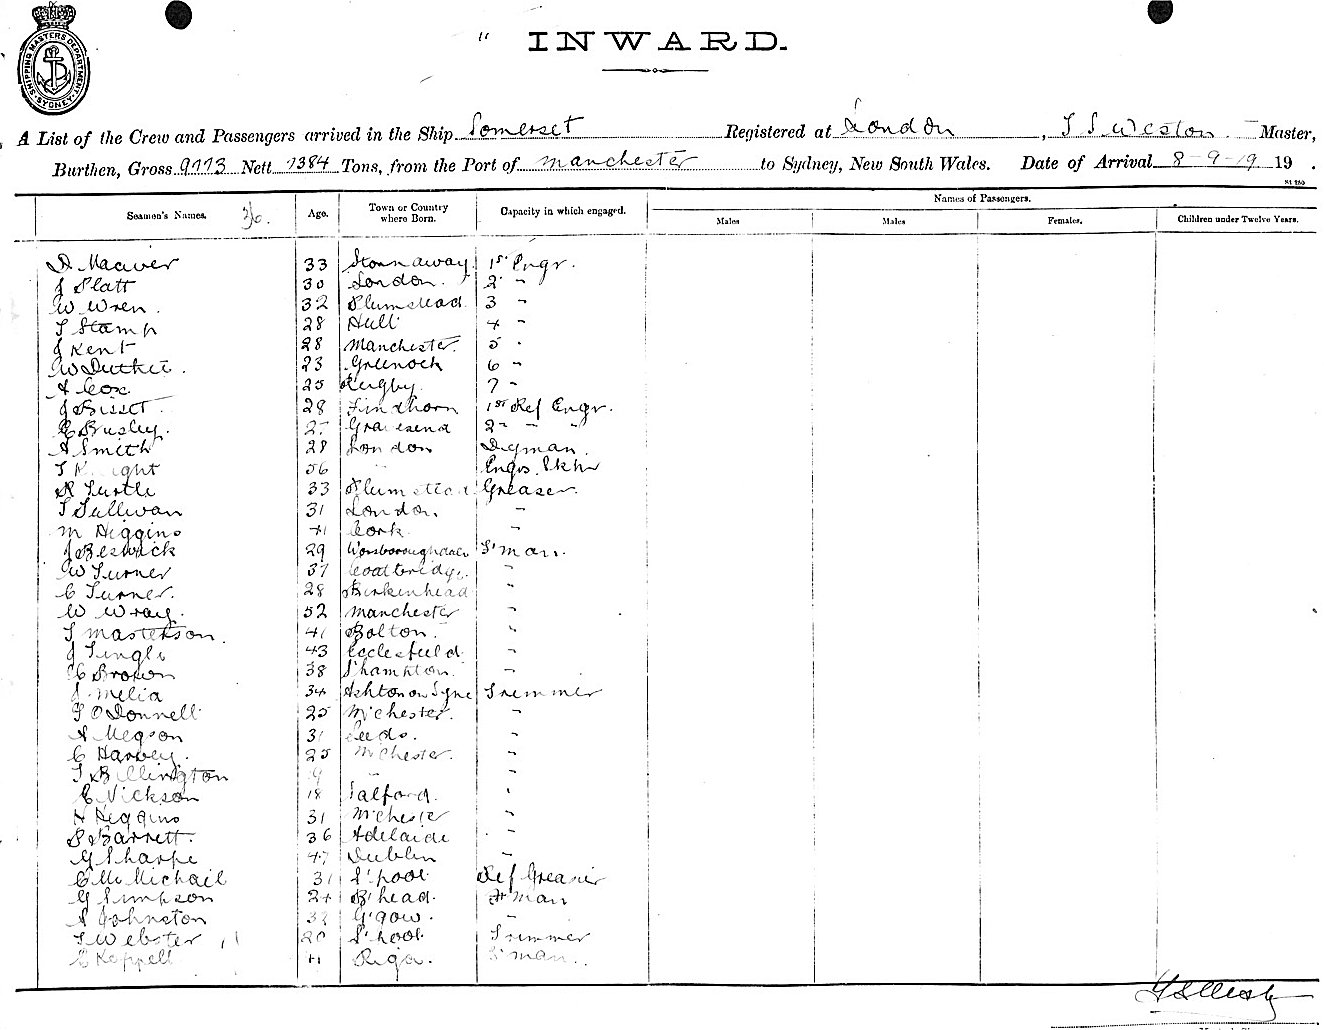 SHIPPING MASTERS DEPARTMENT SYDNEY
" INWARD.
A List of the Crew and Passengers arrived in the Ship Somerset Registered at London, Master,
Burthen, Gross 9773 Nett 7384 Tons, from the Port of Manchester to Sydney, New South Wales. Date of Arrival 8-9-19 19 .
Seamen's Names. 36. Age. Town or Country where Born. Capacity in which engaged. Names of Passengers.
Males Males Females. Children under Twelve Years.
D Maciver 33 Stornaway 1st Engr.
J Platt 30 London. 2 "
W Wren. 32 Plumstead 3 "
T Stamp 28 Hull 4 "
J Kent 28 Manchester. 5 "
W 23 Greenock 6 "
A Cox 25 Rugby. 7 "
J Bisset 28 Findhorn 1st Ref Engr.
C Busley. Gravesend 2 " "
A Smith 28 London
T 56 " Engrs
R Turtle 33 Plumstead Greaser.
T Sullivan 31 London. "
M Higgins 41 Cork. "
J Beswick 29 Worsboroughdale F'man.
W Turner 37 Coatbridge. "
C Turner. 28 Birkenhead "
W Wray. 52 Manchester "
T Masterson. 41 Bolton. "
J Tingle 43 Ecclesfield "
C Brown 38 S'hampton. "
J Melia 34 Ashton on Tyne Trimmer
T O'Donnell 25 M'chester. "
A Megson 31 Leeds. "
C Harvey. 25 M'chester. "
T Billington "
E Vickson 18 Salford. "
H Higgins 31 M'chester "
P Barrett. 36 Adelaide "
G Sharpe 47 Dublin "
C McMichail 31 L'pool Ref Greaser
G Simpson 24 B'head. F'man
A Johnston 32 G'gow. "
T Webster 20 L'pool Trimmer
C Keppell 41 Riga. F'man.